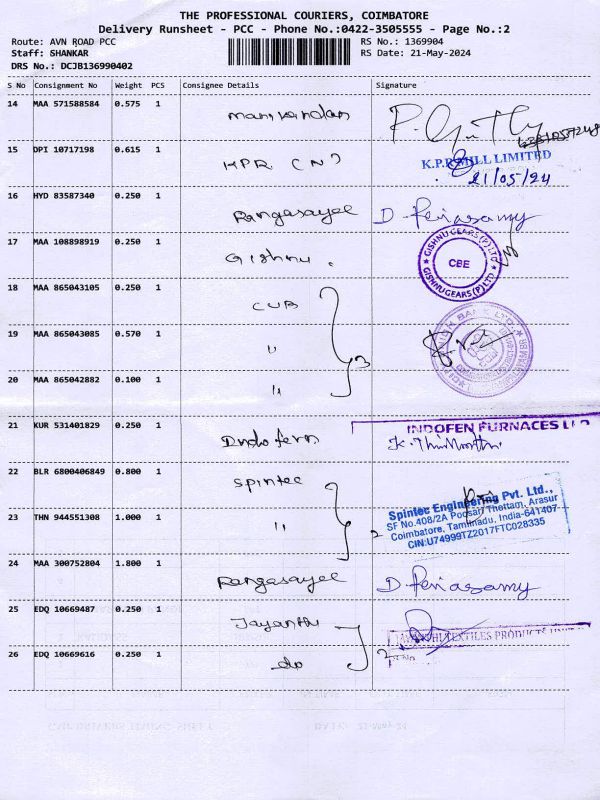 THE PROFESSIONAL COURIERS, COIMBATORE
Delivery Runsheet - PCC - Phone No.:0422-3505555 - Page No.:2
Route: AVN ROAD PCC RS No.: 1369904
Staff: SHANKAR RS Date: 21-May-2024
DRS No.: DCJB136990402
S No Consignment No Weight PCS Consignee Details Signature
14 MAA 571588584 0.575 1 Manivandan
15 DPI 10717198 0.615 1 KPR (N) K.P.R. MILL LIMITED
21/05/24
16 HYD 83587340 0.250 1 Rangasayee D. Periasamy
17 MAA 108898919 0.250 1 Gishnu. GISHNU GEARS (P) LTD CBE GISHNU GEARS (P) LTD
18 MAA 865043105 0.250 1 CUB
19 MAA 865043085 0.570 1 " 3
20 MAA 865042882 0.100 1 "
21 KUR 531401829 0.250 1 Indofern INDOFEN FURNACES LLP
22 BLR 6800406849 0.800 1 Spintec
Spintec Engineering Pvt. Ltd.,
SF No.408/2A Poosari Thettam, Arasur
23 THN 944551308 1.000 1 " 2 Coimbatore, Tamilnadu, India-641407
CIN:U74999TZ2017FTC028335
24 MAA 300752804 1.800 1 Rangasayee D. Periasamy
25 EDQ 10669487 0.250 1 Jayanthi JAYANTHI TEXTILES PRODUCTS
26 EDQ 10669616 0.250 1 do 2